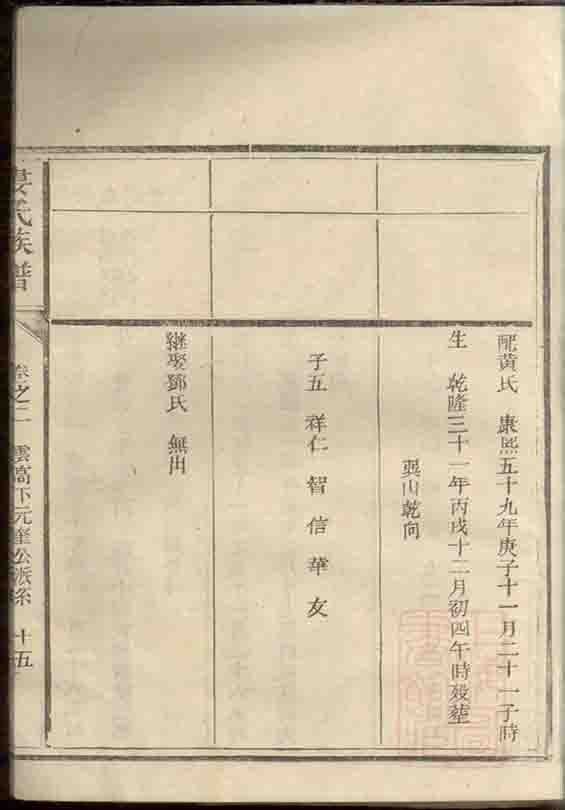 配黃氏 康熙五十九年庚子十一月二十一子時
生 乾隆三十一年丙戌十二月初四午時歿塟
巽山乾向
子五 祥仁 智 信 華 友
繼娶鄧氏 無出
氏族譜
卷之二 雲高下元奎公派系 十五